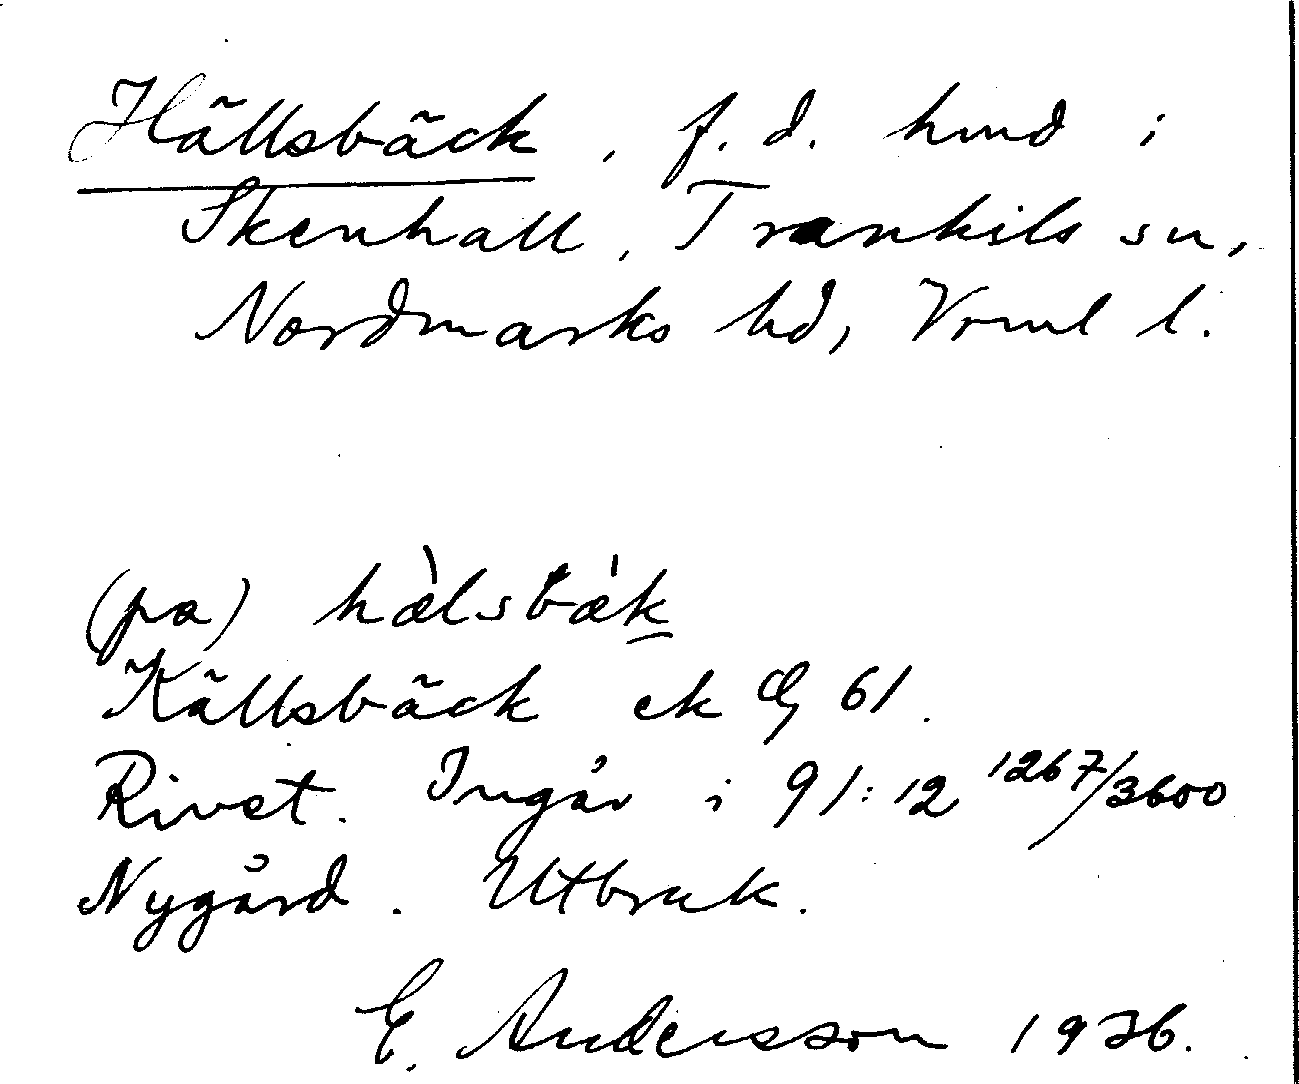 Hällsbäck, f.d. hmd i
Skenhall, Trankils sn,
Nordmarks hd, Vrml l.
(pa) hæ̀lsbæ̍k
Källsbäck ek 61.
Rivet. Ingår i 91:12 1267/3600
Nygård. Utbruk.
E. Andersson 1936.